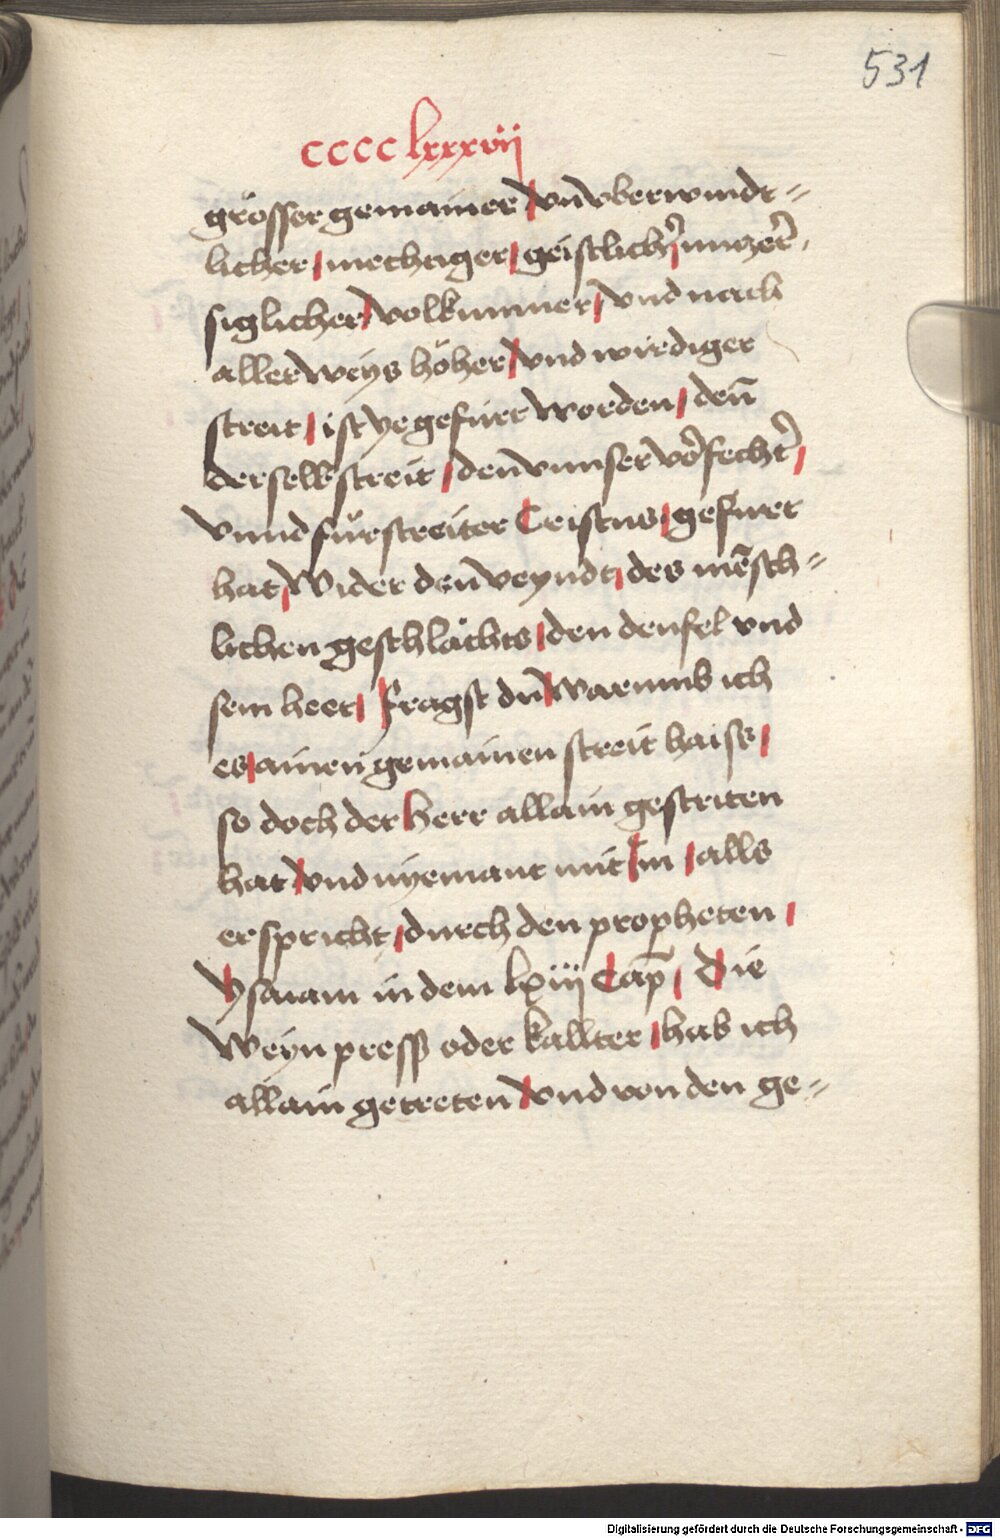 531
cccc lxxxvij
grösser gemainer / vnüberwindt=
licher / mechtiger / geistlich̾ / nuczer̾
siglicher / volkumner / vnd nach
aller weÿs höher / vnd wirdiger
streit / ist ye gefürt worden / den̄
derselb streit / den vnnser vor̾fecht̾ /
vnnd fürstreiter Cristus / gefürt
hat / Wider den veyndt / des mēsch=
lichen geschlächts / den deufel vnd
sein heer / Fragst du / warumb ich
es / ainen gemainen streit haiss /
so doch der Herr allain gestriten
hat / vnd nÿemant mit Im / alls
er spricht / durch den propheten /
Ysaiam in dem lxiij Cap̄ / Die
Weÿn press oder kallter / hab ich
allain getreten / vnd von den ge=
Digitalisierung gefördert durch die Deutsche Forschungsgemeinschaft - DFG